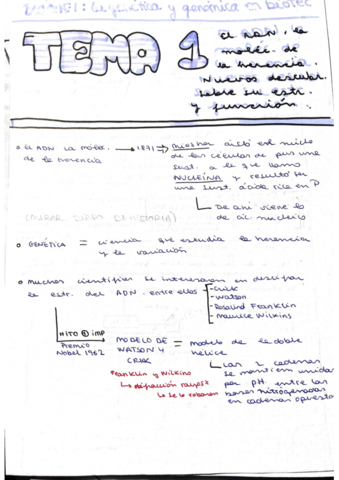 BLOQUE 1: La genética y genómica en biotec
TEMA 1
El ADN, la
moléc. de
la herencia.
Nuevos descubr.
sobre su estr.
y función.
o El ADN la moléc. → 1871 → Miescher aisló del núcleo
de la herencia
de las células de pus una
sust. a la que llamó
NUCLEÍNA y resultó ser
una sust. ácida rica en P
De ahí viene lo
de ác. nucleico
o GENÉTICA = ciencia que estudia la herencia
y la variación
o Muchos científicos se interesaron en descifrar
la estr. del ADN entre ellos
- Crick
- Watson
- Rosalind Franklin
- Maurice Wilkins
HITO ① imp
Premio
Nobel 1962
MODELO DE
WATSON Y
CRICK
= modelo de la doble
hélice
Las 2 cadenas
se mantienen unidas
por pH entre las
bases nitrogenadas
en cadenas opuestas
Franklin y Wilkins
↳ difracción rayos X
↳ se lo robaron